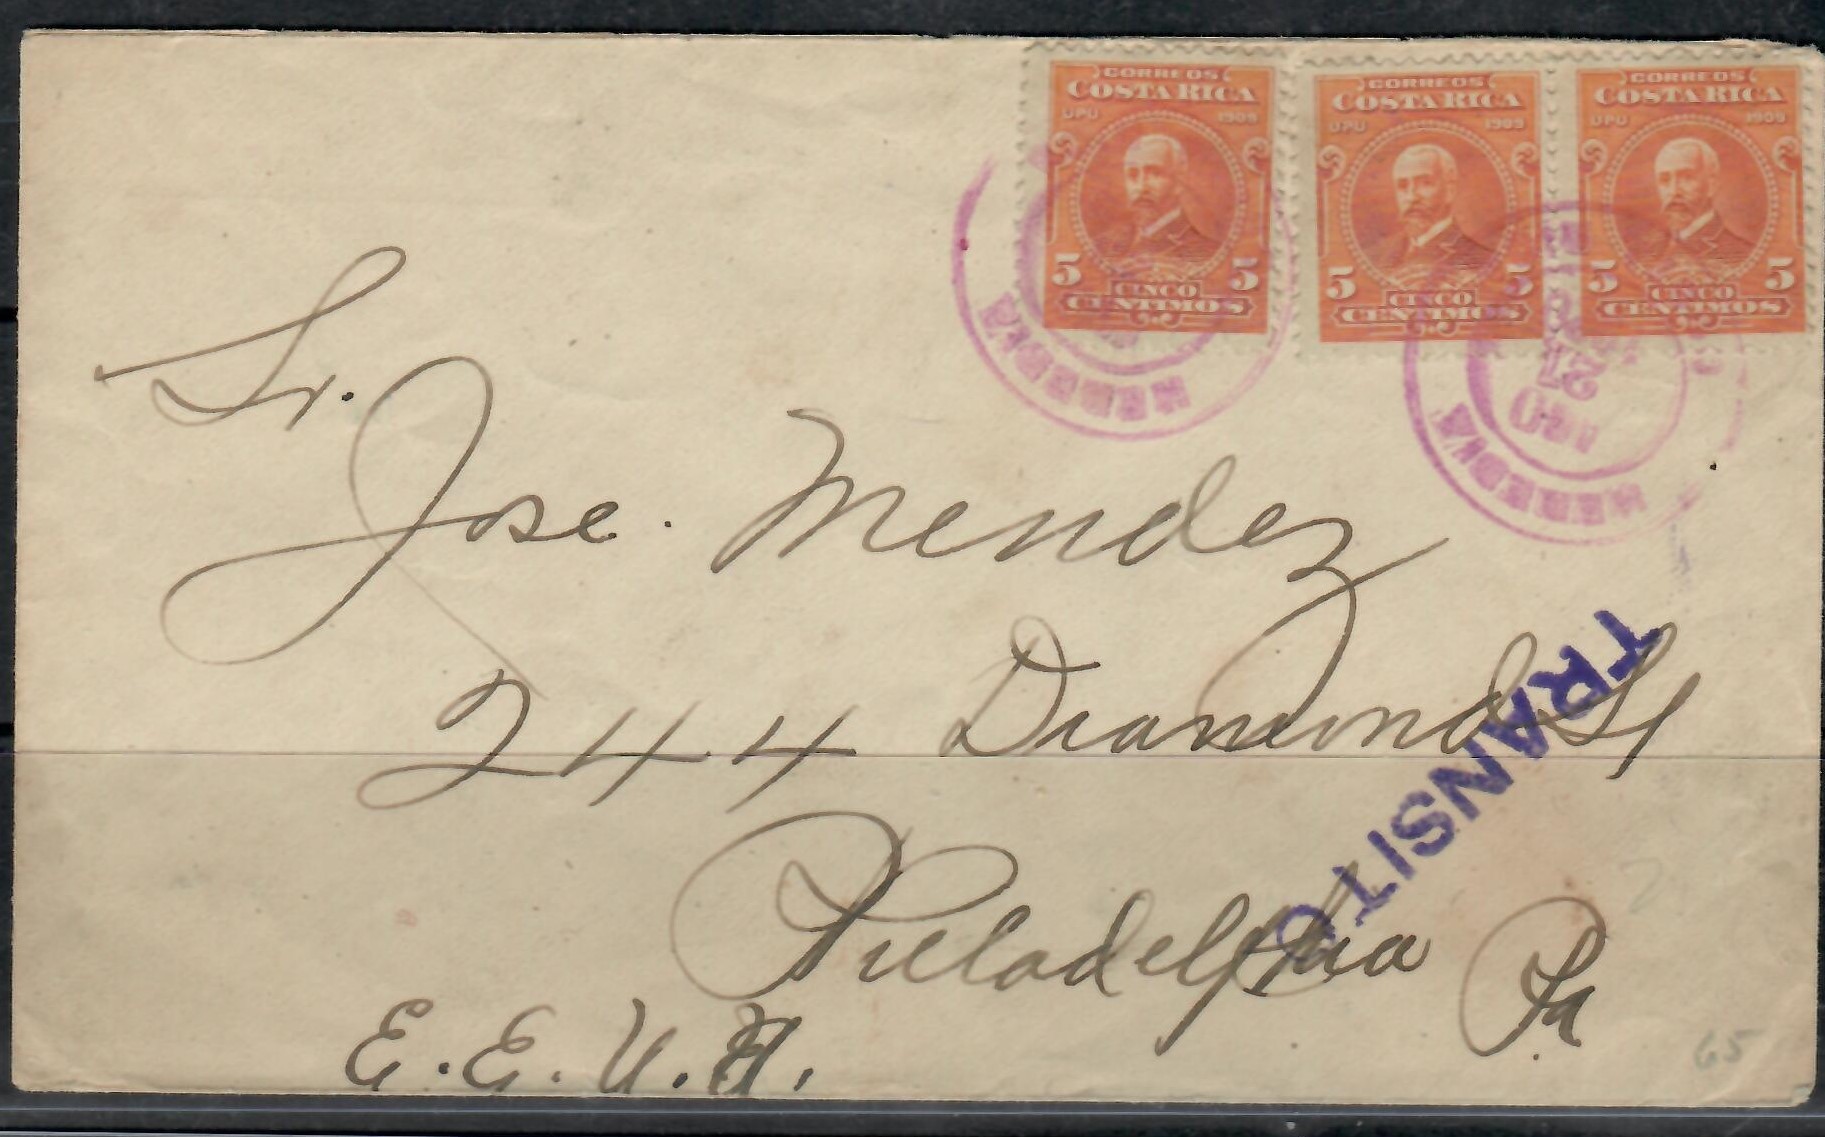 CORREOS
COSTA RICA
UPU 1909
5 5
CINCO
CENTIMOS
CORREOS
COSTA RICA
UPU 1909
5 5
CINCO
CENTIMOS
CORREOS
COSTA RICA
UPU 1909
5 5
CINCO
CENTIMOS
HEREDIA
HEREDIA
21
Sr.
Jose. Mendez
244 Diamond St
Philadelphia Pa
E.E.U.U.
TRANSITO
65